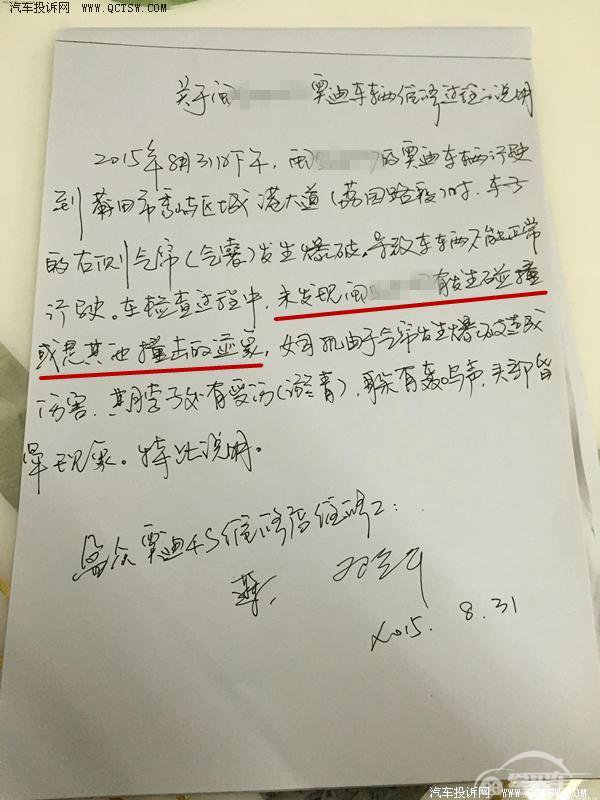 汽车投诉网
WWW.QCTSW.COM
汽车投诉网
WWW.QCTSW.COM
关于闽 奥迪车辆维修过程的说明
2015年8月31日下午，闽 的奥迪车辆行驶
到莆田市秀屿区城港大道（荔园路段）时，车子
的右侧气帘（气囊）发生爆破。导致车辆不能正常
行驶。在检查过程中，未发现闽 有发生碰撞
或是其他撞击的迹象，女司机由于气帘发生爆破造成
伤害，其脖子处有受伤（淤青），耳朵有轰鸣声，头部昏
晕现象。特此说明。
奥迪4S维修店维修工：
2015. 8.31
汽车投诉网
WWW.QCTSW.COM
汽车投诉网
WWW.QCTSW.COM